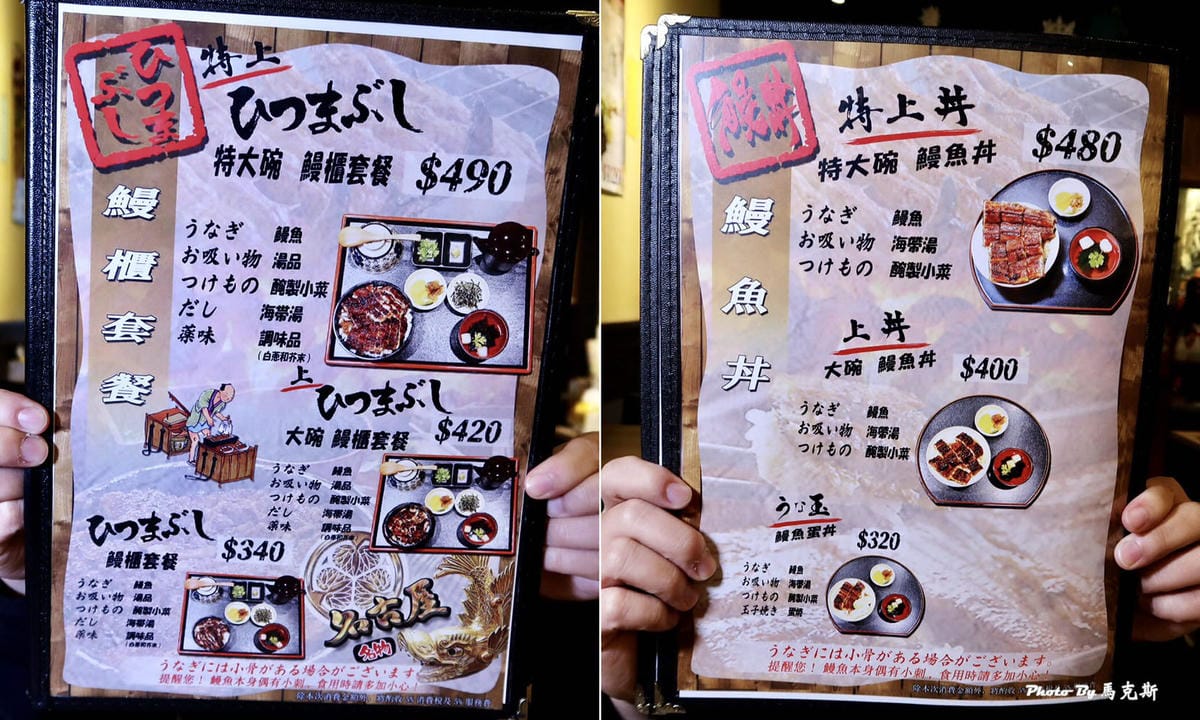 ひつまぶし
特上
ひつまぶし
特大碗 鰻櫃套餐 $490
鰻櫃套餐
うなぎ 鰻魚
お吸い物 湯品
つけもの 醃製小菜
だし 海帶湯
薬味 調味品
(白蔥和芥末)
上
ひつまぶし
大碗 鰻櫃套餐 $420
うなぎ 鰻魚
お吸い物 湯品
つけもの 醃製小菜
だし 海帶湯
薬味 調味品
(白蔥和芥末)
ひつまぶし
鰻櫃套餐 $340
うなぎ 鰻魚
お吸い物 湯品
つけもの 醃製小菜
だし 海帶湯
薬味 調味品
(白蔥和芥末)
名古屋
名物
うなぎには小骨がある場合がございます
提醒您！鰻魚本身偶有小刺，食用時請多加小心！
鰻丼
特上丼
特大碗 鰻魚丼 $480
鰻魚丼
うなぎ 鰻魚
お吸い物 海帶湯
つけもの 醃製小菜
上丼
大碗 鰻魚丼 $400
うなぎ 鰻魚
お吸い物 海帶湯
つけもの 醃製小菜
うな玉
鰻魚蛋丼 $320
うなぎ 鰻魚
お吸い物 海帶湯
つけもの 醃製小菜
玉子焼き 蛋燒
うなぎには小骨がある場合がございます
提醒您！鰻魚本身偶有小刺，食用時請多加小心！
Photo By 馬克斯